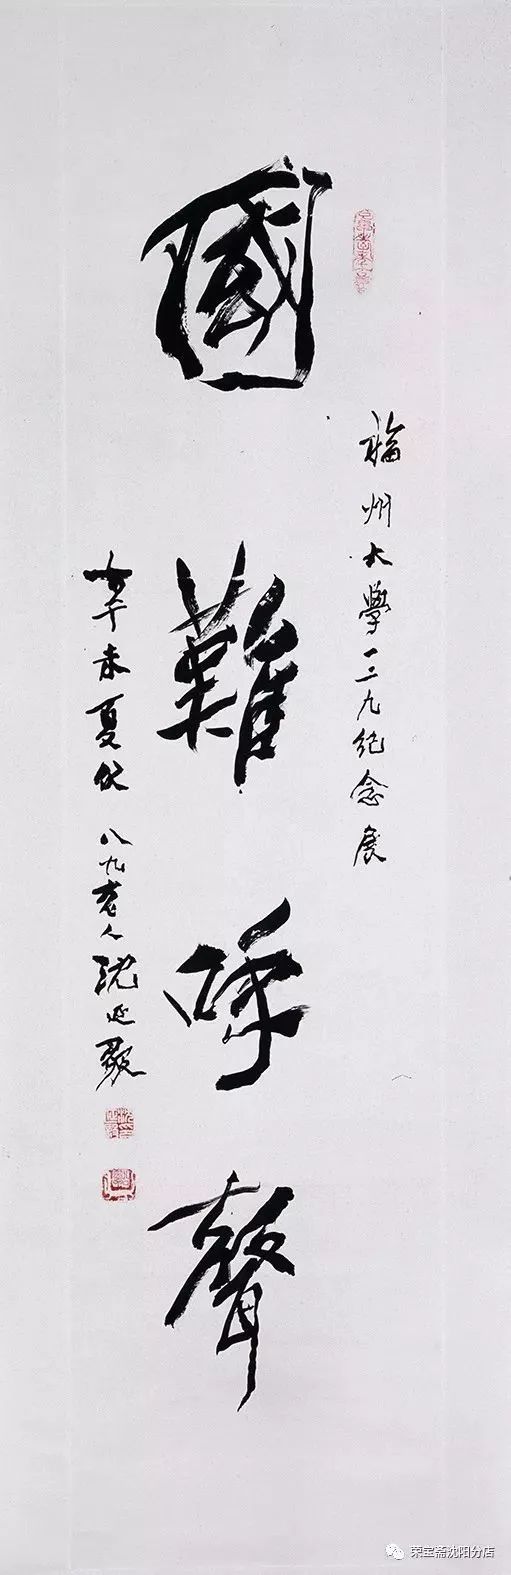 福州大學一二九紀念展
國難呼聲
辛未夏伏 八九老人沈延毅
荣宝斋沈阳分店